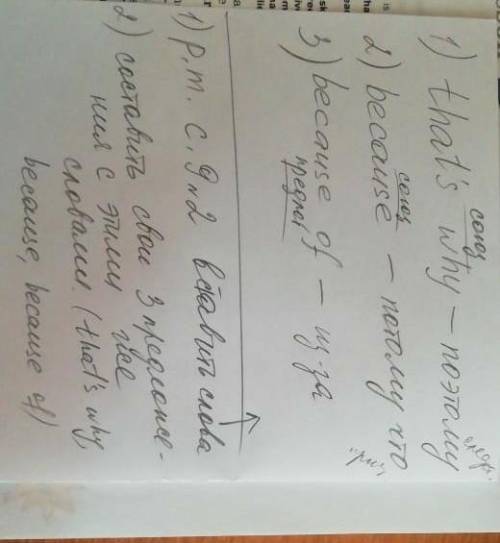 союз
1) that's why – поэтому
союз
2) because – потому что
3) because of – из-за
предлог
1) р.т. с. 9 n2 вставить слова
2) составить свои 3 предложе-
ния с этими
словами. (that's why,
because, because of)